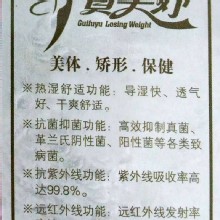 Guifuyu Losing Weight
美体.矫形.保健
※热湿舒适功能：导湿快、透气
好、干爽舒适。
※抗菌抑菌功能：高效抑制真菌、
革兰氏阴性菌、阳性菌等各类致
病菌。
※抗紫外线功能：紫外线吸收率高
达99.8%。
※远红外线功能：远红外线发射率